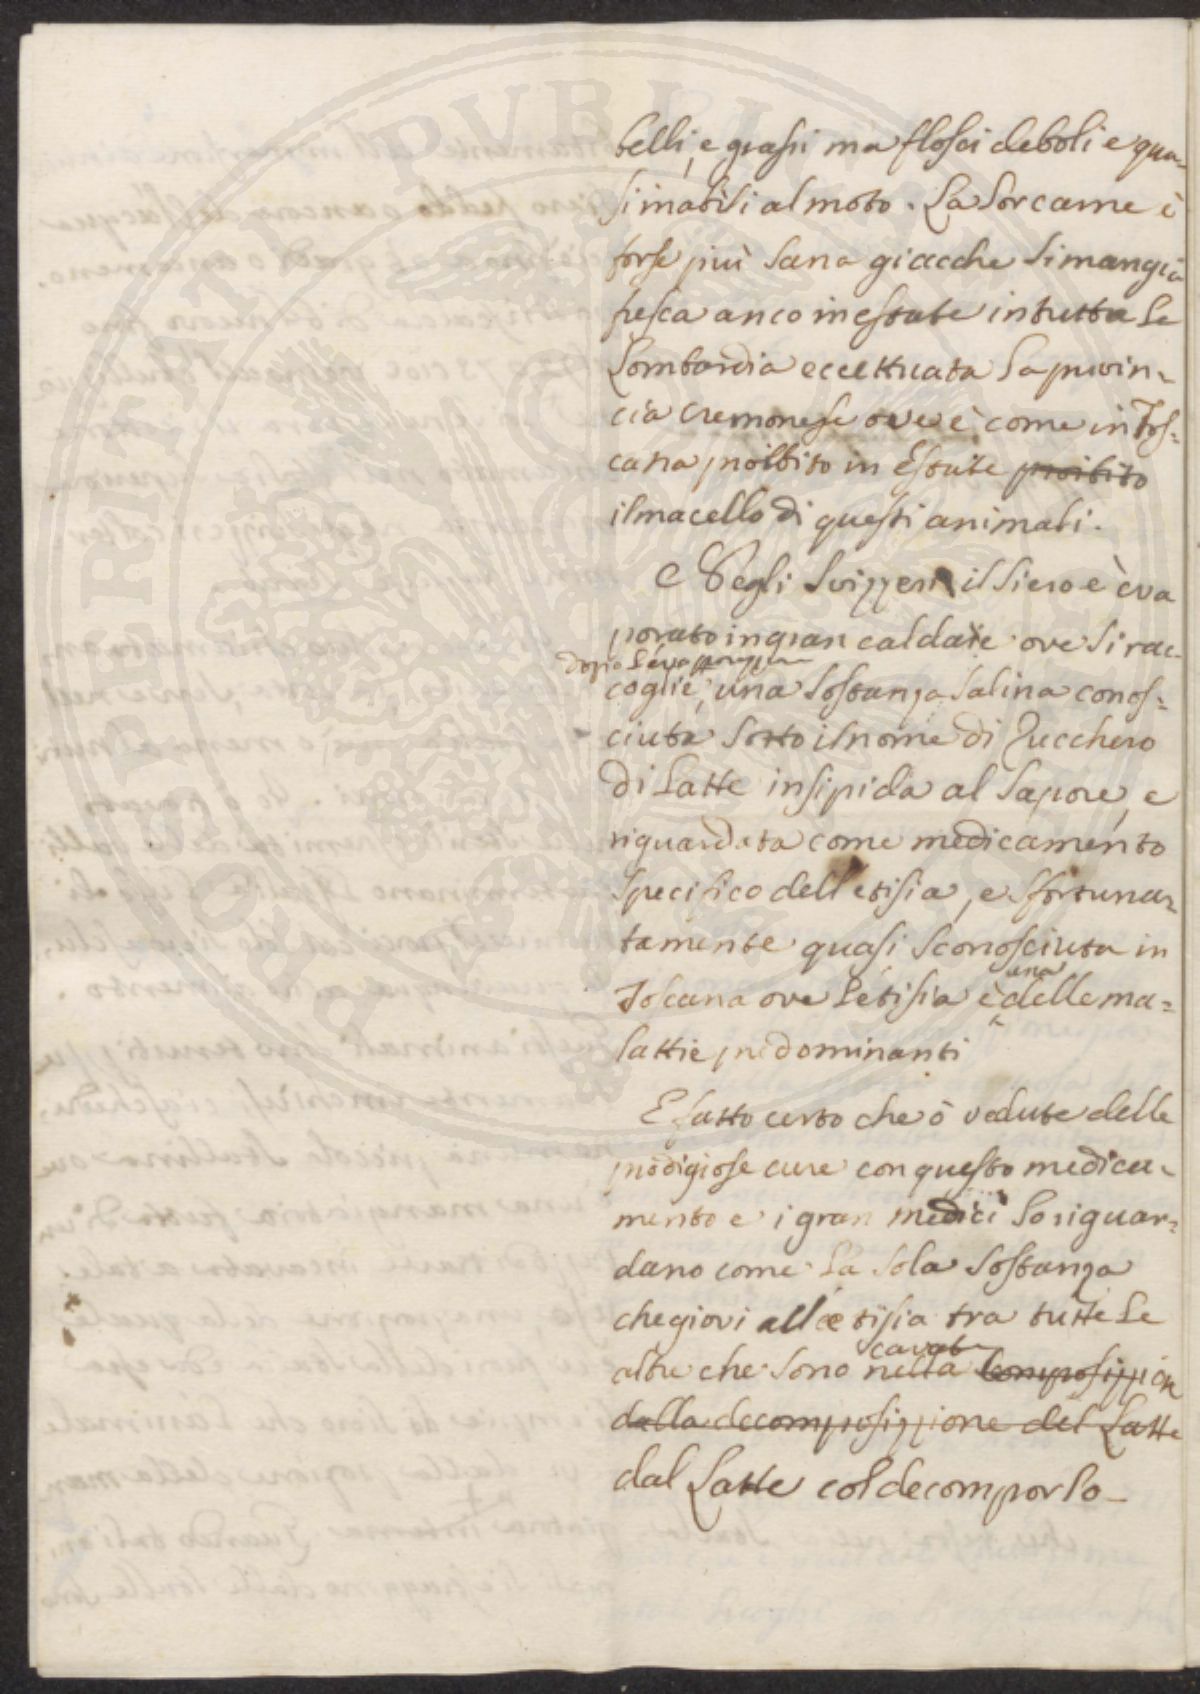 belli, e grassi ma flosci deboli e qua-
si inabili al moto. La Lor carne è
forse più sana giacche si mangia
fresca anco in estate in tutta la
Lombardia eccettuata la provin-
cia cremonese ove è come in Tos=
cana proibito in Estate proibito
il macello di questi animali.
Degli Svizzeri il siero è eva
porato in gran caldaie ove si rac-
dopo l'evapporazzione
coglie, una sostanza salina conos=
ciuta sotto il nome di Zucchero
di Latte insipida al sapore, e
riguardata come medicamento
specifico dell etisia, e sfortuna-
tamente quasi sconosciuta in
una
Toscana ove l'etisia è delle ma=
lattie predominanti
E fatto certo che ò vedute delle
prodigiose cure con questo medica-
mento e i gran medici lo riguar=
dano come la sola sostanza
che giovi all etisia tra tutte le
cavate
altre che sono nella composizzion
dalla decomposizzione del Latte
dal Latte col decomporlo-
PROSPERITATI PVBLICAE